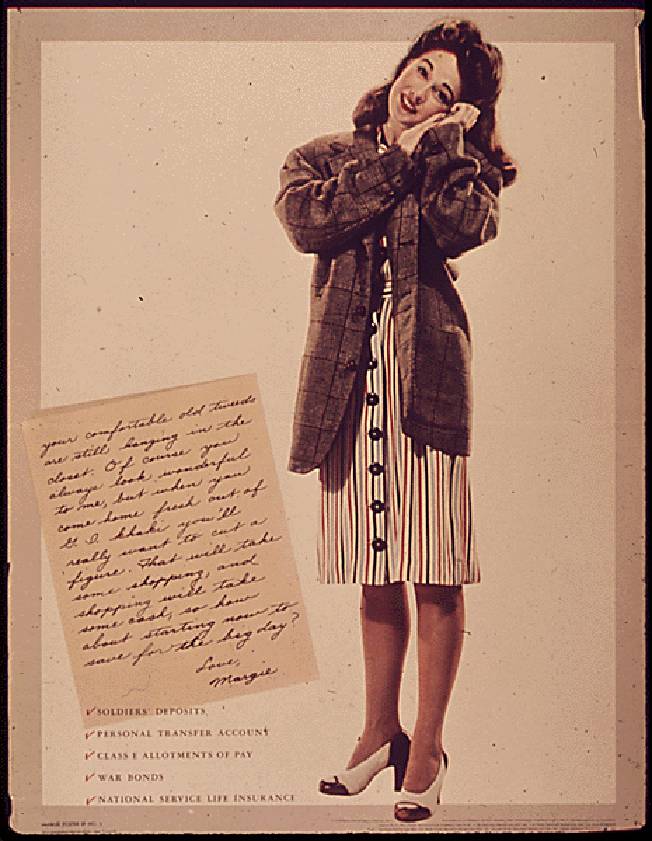 your comfortable old tweeds
are still hanging in the
closet. Of course you
always look wonderful
to me, but when you
come home fresh out of
G I khaki you'll
really want to cut a
figure. That will take
some shopping, and
shopping will take
some cash, so how
about starting now to
save for the big day?
Love,
Margie
SOLDIERS' DEPOSITS
PERSONAL TRANSFER ACCOUNT
CLASS E ALLOTMENTS OF PAY
WAR BONDS
NATIONAL SERVICE LIFE INSURANCE